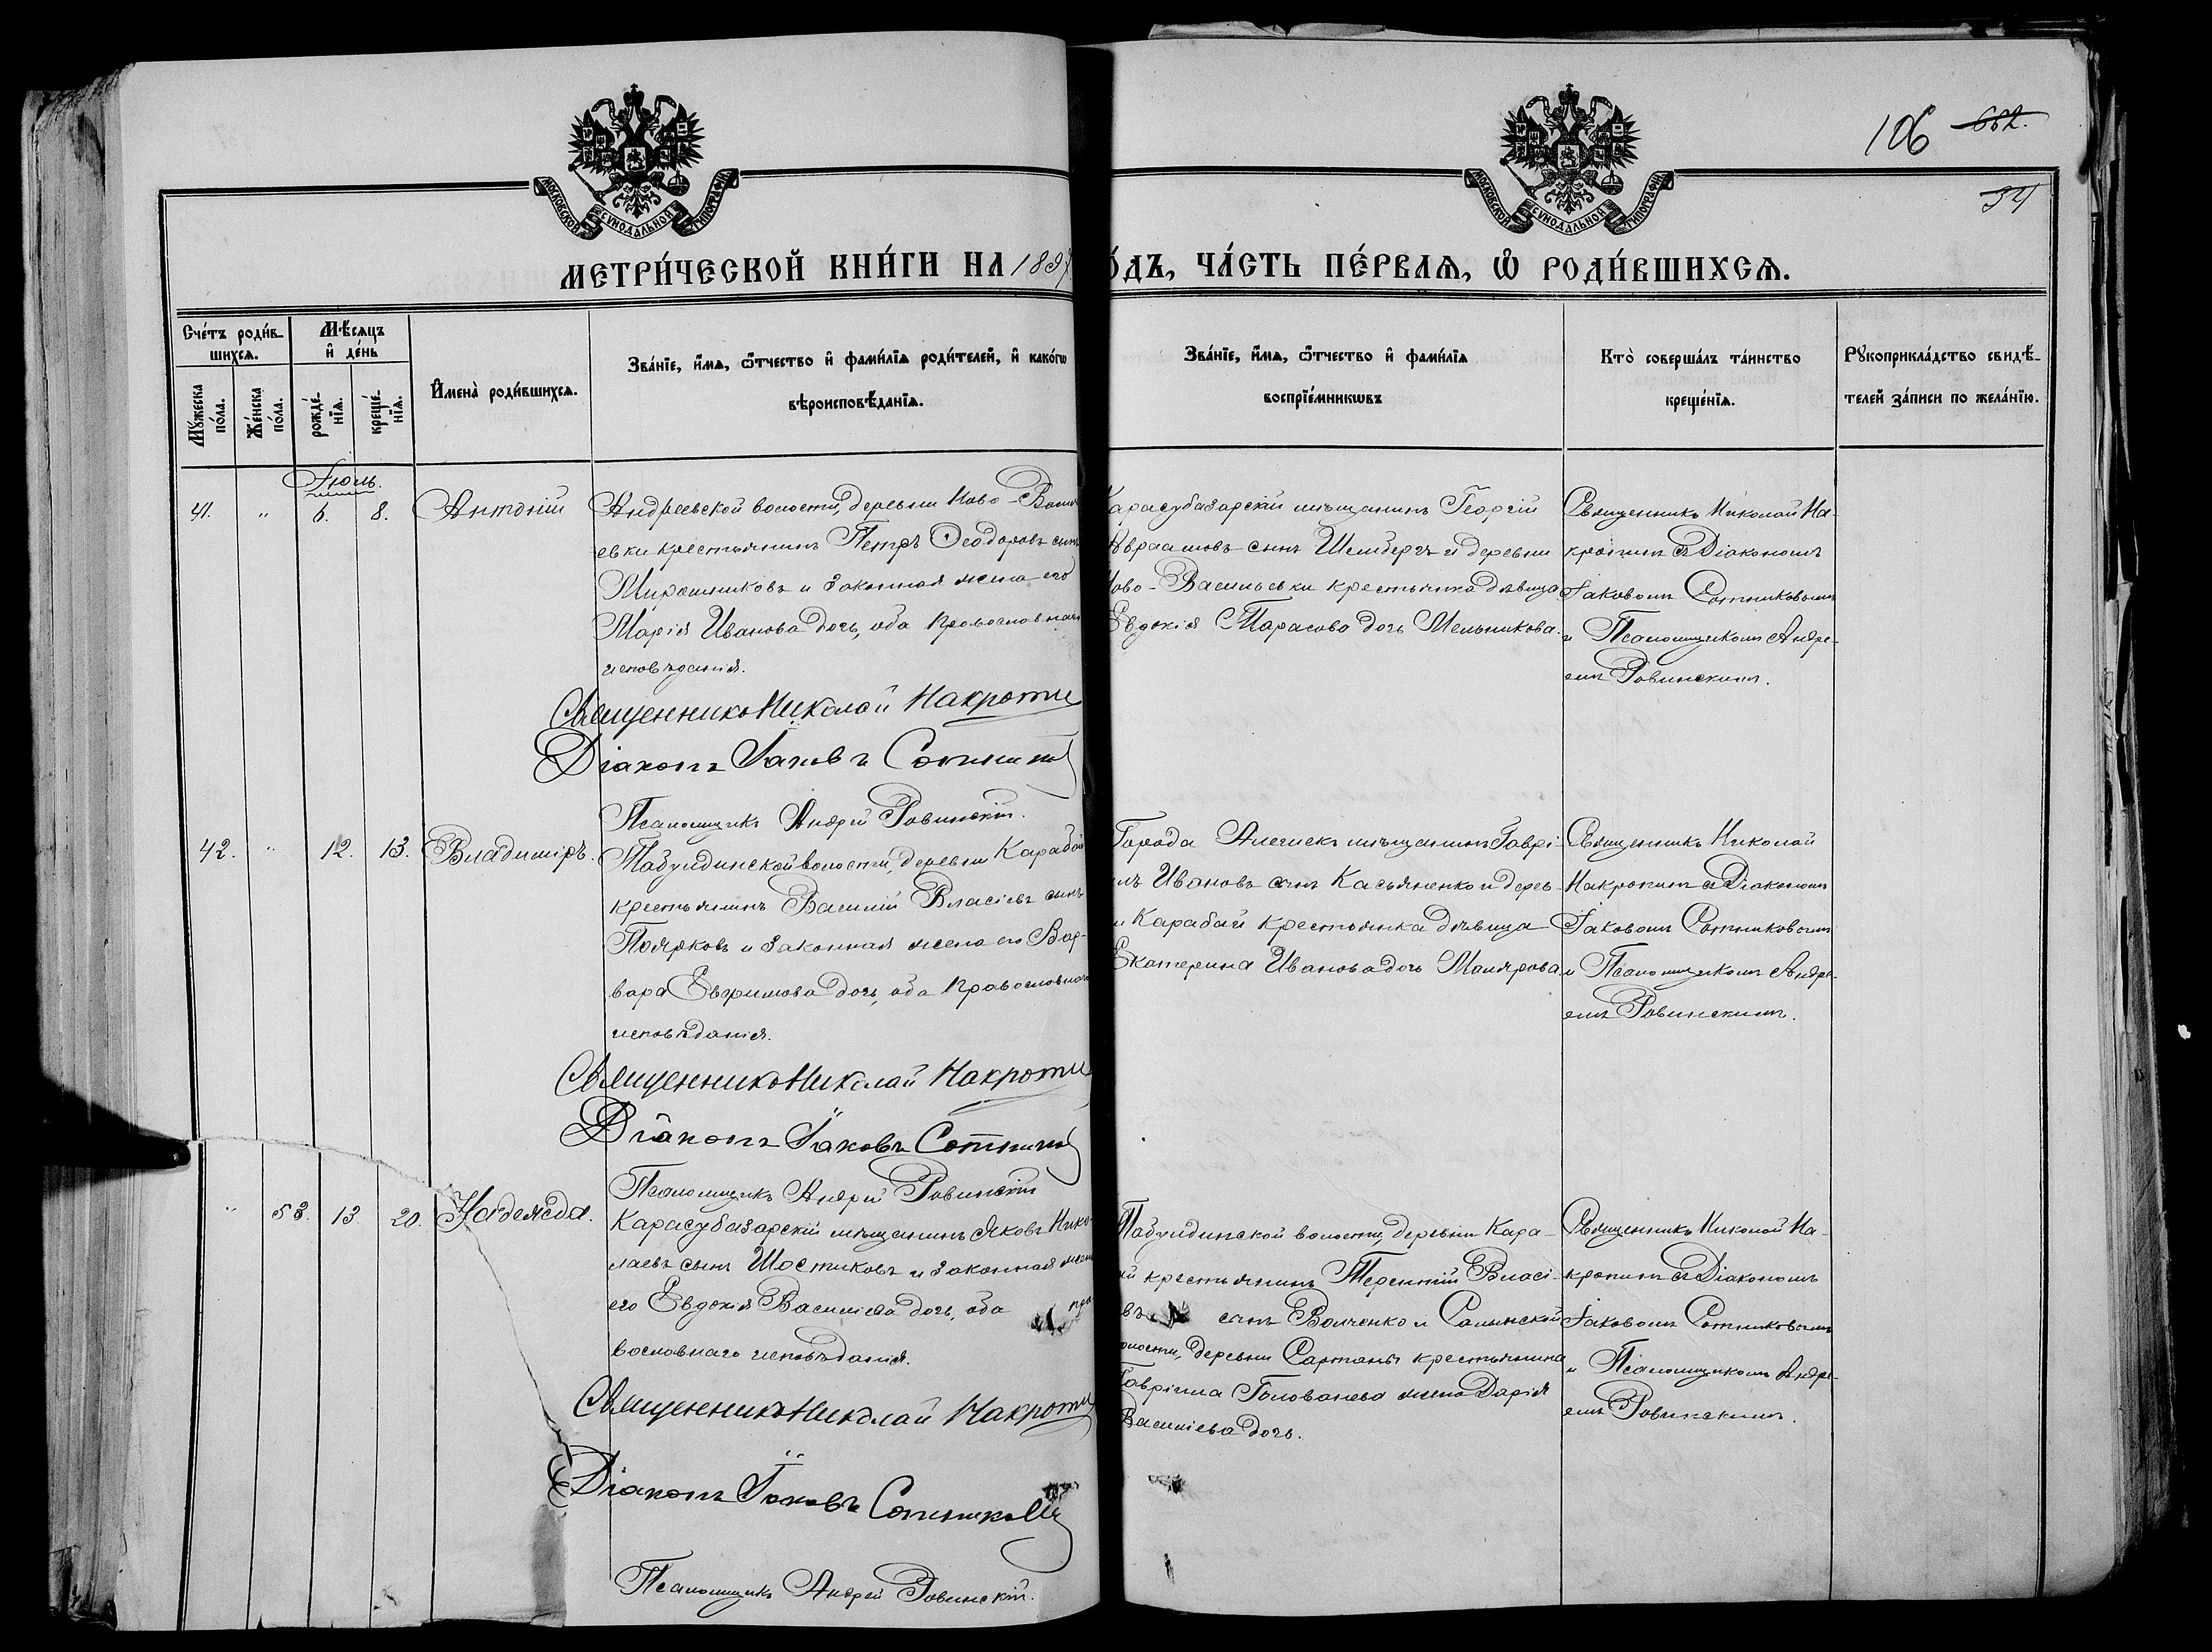 106 652.
34
МОСКОВСКОЙ СѴНОДАЛЬНОЙ ТИПОГРАФІИ
МОСКОВСКОЙ СѴНОДАЛЬНОЙ ТИПОГРАФІИ
МЕТРИ́ЧЕСКОЙ КНИ́ГИ НА 1897
О́ДЪ, ЧА́СТЬ ПЕ́РВАѦ, Ѽ РОДИ́ВШИХСѦ.
Сче́тъ роди́в-
шихсѧ.
Мѣ́сѧцъ
и҆ де́нь
Мꙋ́жеска по́ла.
Же́нска по́ла.
рожде́-нїѧ.
креще́-нїѧ.
И҆мена̀ роди́вшихсѧ.
Зва́нїе, и҆́мѧ, ѻ҆́тчество и҆ фами́лїѧ роди́телей, и҆ како́гѡ
вѣроисповѣ́данїѧ.
Зва́нїе, и҆́мѧ, ѻ҆́тчество и҆ фами́лїѧ
воспрїе́мникѡвъ
Кто̀ соверша́лъ та́инство
креще́нїѧ.
Рꙋкоприкла́дство свидѣ́-
телей за́писи по жела́нїю.
Іюль.
41. " 6. 8. Антоній
Андреевской волости, деревни Ново-Василь
евки крестьянинъ Петръ Ѳеодоровъ сынъ
Мирошниковъ и законная жена его
Марія Иванова дочь, оба православнаго
исповѣданія.
Священникъ Николай Накропи
Діаконъ Іаковъ Сотник
Псаломщикъ Андрей Ровинскій.
арасубазарскій мѣщанинъ Георгій
Авраамовъ сынъ Шемберъ и деревни
Ново-Васильевки крестьянка дѣвица
Евдокія Тарасова дочь Мельникова.
Священникъ Николай На-
кропинъ съ Діакономъ
Іаковомъ Сотниковымъ
и Псаломщикомъ Андре-
емъ Ровинскимъ.
42. " 12. 13. Владиміръ.
Табулдинской волости, деревни Карабай
крестьянинъ Василій Власіевъ сынъ
Поярковъ и законная жена его Вар-
вара Евфимова дочь, оба православнаго
исповѣданія.
Священникъ Николай Накропи
Діаконъ Іаковъ Сотник
Псаломщикъ Андрей Ровинскій
Города Алешекъ мѣщанинъ Гаврі-
илъ Ивановъ сынъ Касьяненко и дерев-
и Карабай крестьянка дѣвица
Екатерина Иванова дочь Малярова.
Священникъ Николай
Накропинъ съ Діакономъ
Іаковомъ Сотниковымъ
и Псаломщикомъ Андре-
емъ Ровинскимъ.
" 53. 13 20. Надежда.
Карасубазарскій мѣщанинъ Яковъ Нико-
лаевъ сынъ Шостиковъ и законная жена
его Евдокія Василіева дочь, оба пра-
вославнаго исповѣданія.
Священникъ Николай Накропи
Діаконъ Іаковъ Сотников
Псаломщикъ Андрей Ровинскій.
Табулдинской волости, деревни Кара-
ай крестьянинъ Терентій Власі-
въ сынъ Волченко и Салынской
волости, деревни Сартанъ крестьянина
Гавріила Голованева жена Дарія
Василіева дочь.
Священникъ Николай На-
кропинъ съ Діакономъ
Іаковомъ Сотниковымъ
и Псаломщикомъ Андре-
емъ Ровинскимъ.